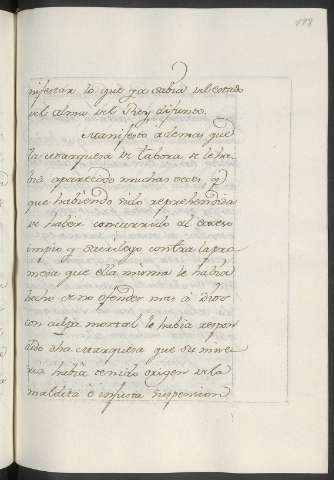 nifestar lo que ya sabia del estado
del alma del Rey difunto.
Manifesto ademas que
la Marquesa de Tabora se le ha-
via aparecido muchas veces, y
que habiendo sido reprehendida
de haber concurrido al exceso
impio y sacrilego contra la pro-
mesa que ella misma le habia
hecho de no ofender mas à Dios
con culpa mortal le habia respon-
dido dha Marquesa que su mise-
ria habia tenido origen de la
maldita è injusta